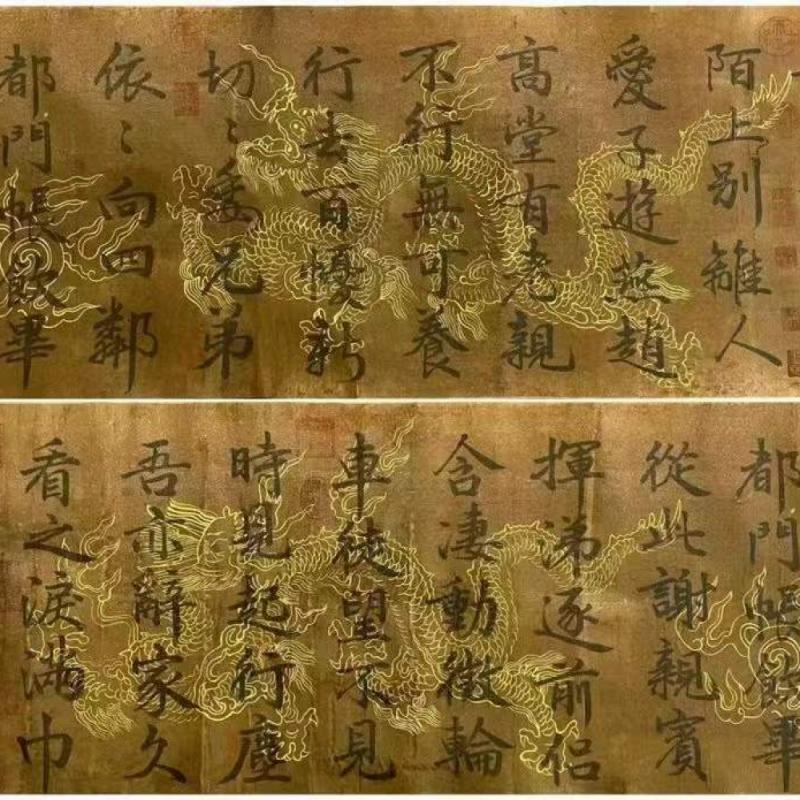 陌上别離人
愛子遊燕趙
高堂有老親
不行無可養
行去百懮新
切〻委兄弟
依〻向四鄰
都門帳飲畢
都門帳飲畢
從此謝親賓
揮涕逐前侶
含淒動徵輪
車徒望不見
時見起行塵
吾亦辭家久
看之淚滿巾